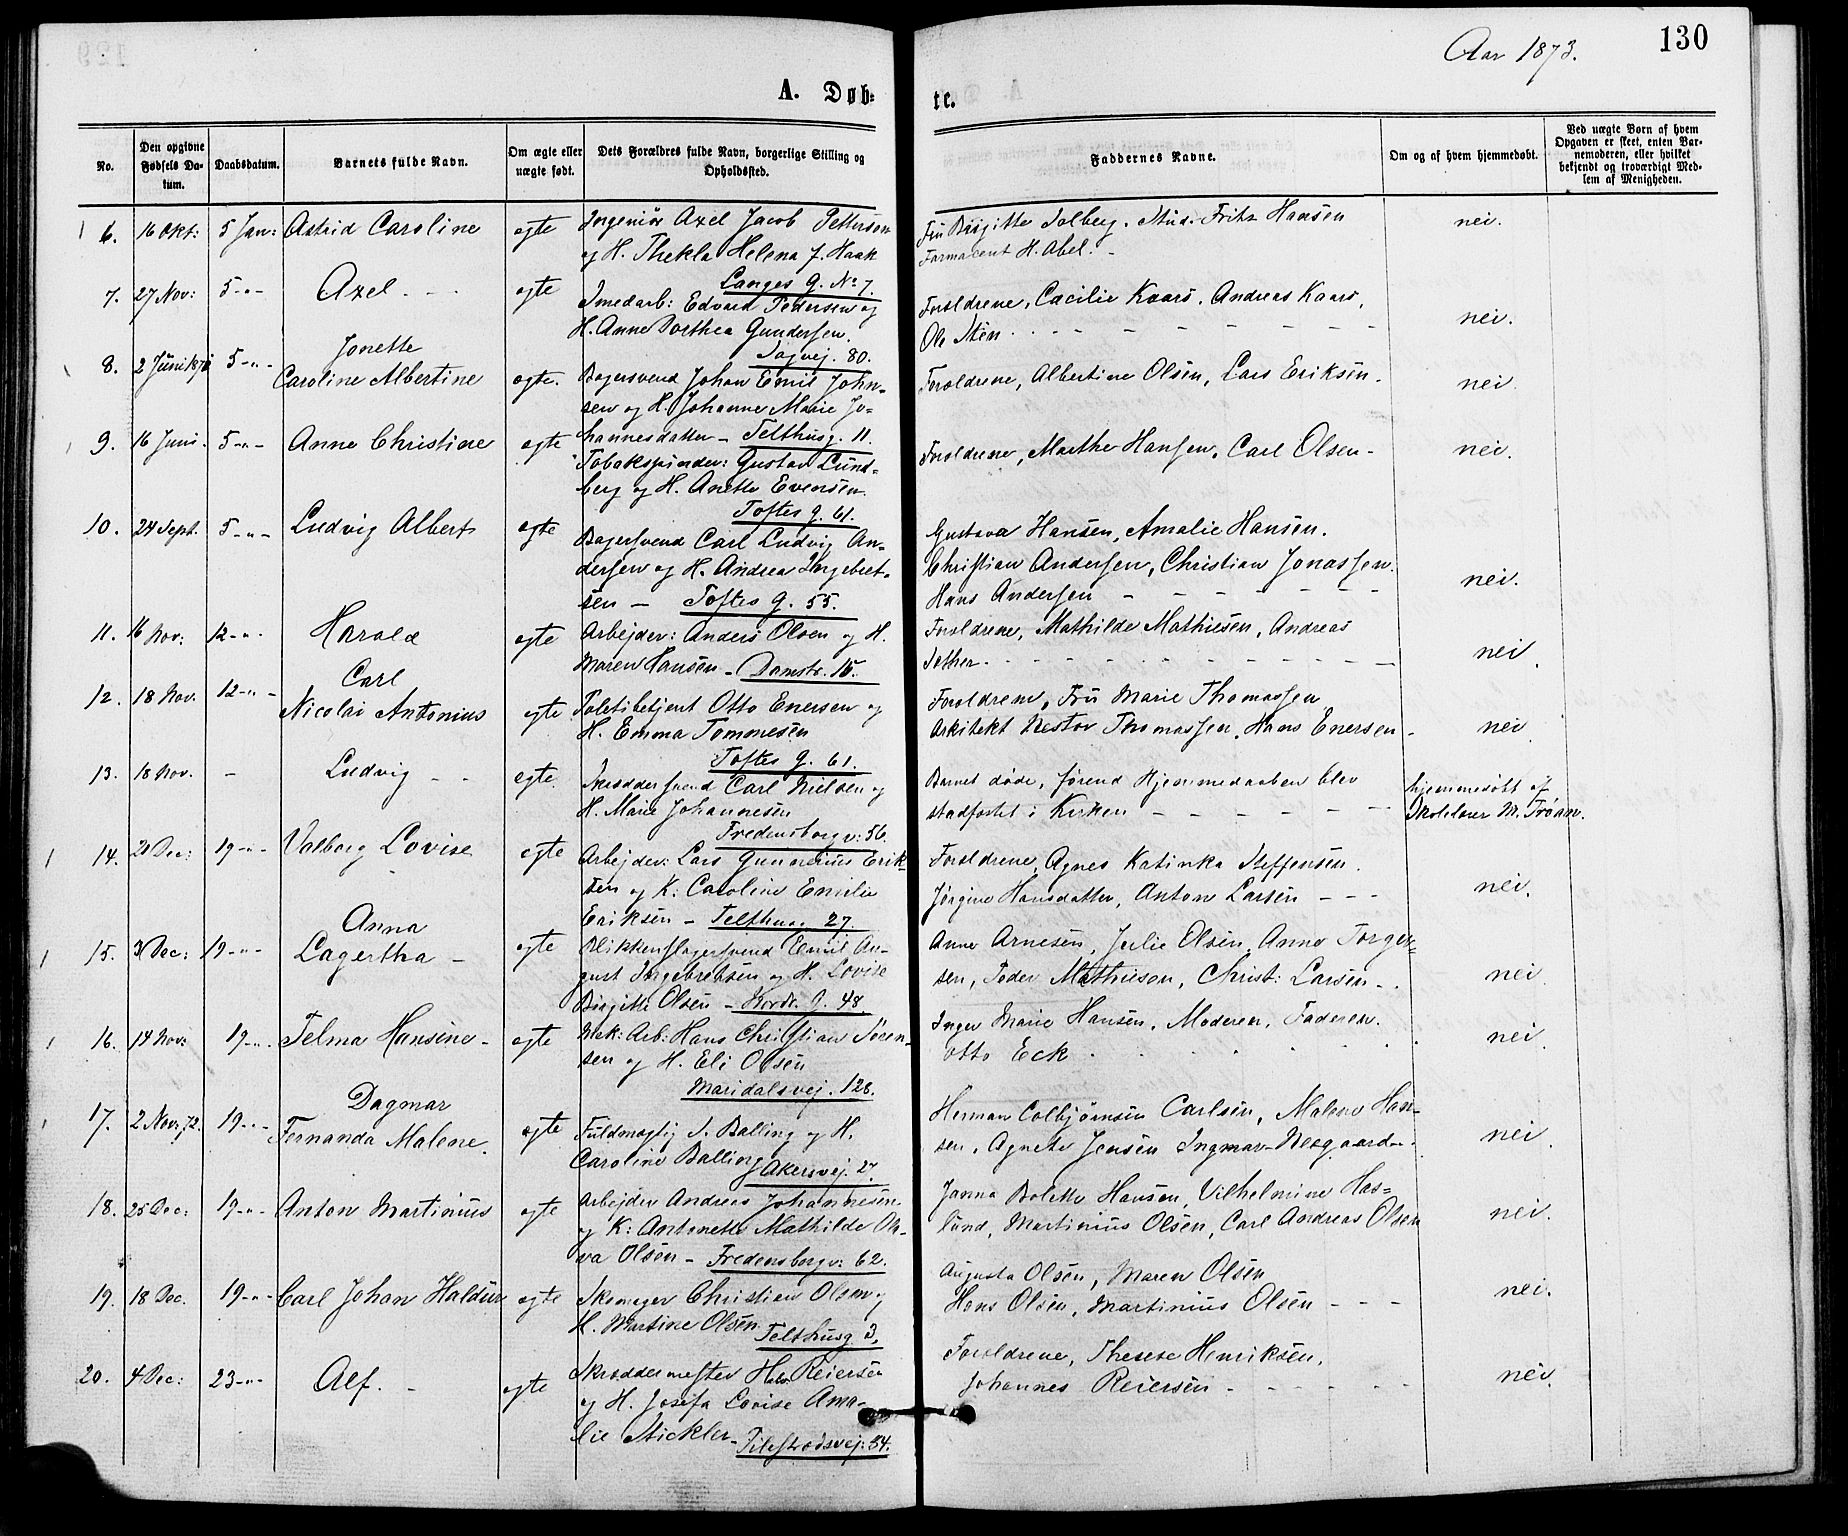 Aar 1873.
130
A. Døb-
te.
No.
Den opgivne Fødsels Da-tum.
Daabsdatum.
Barnets fulde Navn.
Om ægte eller uægte født.
Dets Forældres fulde Navn, borgerlige Stilling og Opholdssted.
Faddernes Navne.
Om og af hvem hjemmedøbt.
Ved uægte Børn af hvem Opgaven er skeet, enten Bar-nemoderen, eller hvilket bekjendt og troværdigt Med-lem af Menigheden.
6. 16 Okt: 5 Jan: Astrid Caroline egte
Ingeniör Axel Jacob Pettersen
og H. Thekla Helena f. Haak
Langes G. No 7.
Fru Birgitte Solberg. Stud. Fritz Hansen
Farmacent H. Abel. -
nei.
7. 27 Nov: 5-"- Axel. - - egte
Smedarb: Edvard Pedersen og
H. Anne Dorthea Gundersen.
Sagvej. 80.
Foreldrene, Cacilie Kaars, Andreas Kaars,
Ole Sten
nei.
8. 2 Juni 5-"- Jonette
Caroline Albertine egte.
Bagersvend Johan Emil John-
sen og H. Johanne Marie Jo-
hannesdatter - Telthusg. 11.
Foreldrene, Albertine Olsen, Lars Eriksen.
nei.
9. 16 Juni. 5-"- Anne Christine egte
Tobakspinder: Gustav Lund-
berg og H. Anette Evensen.
Toftes g. 61.
Foreldrene, Marthe Hansen, Carl Olsen-
nei.
10. 24 Sept. 5-"- Ludvig Albert egte
Bagersvend Carl Ludvig An-
dersen og H. Andrea Ingebret-
sen - Toftes g. 55.
Gustava Hansen, Amalie Hansen.
Christian Andersen, Christian Jonassen.
Hans Andersen - - - - - -
nei.
11. 16 Nov: 12-"- Harald egte
Arbejder: Anders Olsen og H.
Maren Hansen - Damstr. 15.
Foreldrene, Mathilde Mathiesen, Andreas
Sether.
nei.
12. 18 Nov. 12-"- Carl
Nicolai Antonius egte
Poletibetjent Otto Enersen og
H. Emma Tommesen
Toftes G. 61.
Foreldrene, Fru Marie Thomassen
Arkitekt Nestor Thomassen, Hans Enersen -
nei.
13. 18 Nov. - Ludvig - - egte.
Skreddersvend Carl Nielsen og
H. Marie Johannesen
Fredensborgv: 56.
Barnet döde, förend Hjemmedaaben blev
stadfæstet i Kirken - - - - -
hjemmedöbt af
Skolelærer M. Tröan.
14. 20 Dec: 19-"- Valborg Lovise egte
Arbejder: Lars Gunnerius Erik-
sen og K: Caroline Emilie
Eriksen - Telthusg 27.
Foreldrene, Agnes Katinka Steffensen.
Jörgine Hansdatter, Anton Larsen - - -
nei.
15. 3 Dec: 19-"- Anna
Lagertha - egte
Blikkenslagersvend Emil Au-
gust Ingebretsen og H. Lovise
Birgitte Olsen - Nordr. G. 48.
Anne Arnesen, Julie Olsen, Anne Torger-
sen, Peder Mathiesen, Christ: Larsen -.
nei.
16. 14 Nov: 19-"- Telma Hansine - egte
Mek: Arb: Hans Christian Sören-
sen og H. Eli Olsen
Maridalsvej. 128.
Inger Marie Hansen, Moderen, Faderen.
Otto Eck
nei.
17. 2 Nov: 72. 19-"- Dagmar
Fernanda Malene. egte
Fuldmegtig S. Balling og H.
Caroline Balling
Akersvej. 27.
Herman Colbjörnsen Carlsen, Malene Han-
sen, Agnete Jensen Ingmar Neegaard-.
nei.
18. 25 Dec: 19-"- Anton Martinius egte
Arbejder Andreas Johannesen
og K: Antonette Mathilde Oli-
va Olsen - Fredensborgv: 62.
Janna Bolette Hansen, Vilhelmine Has-
lund, Martinius Olsen, Carl Andreas Olsen
nei.
19. 18 Dec. 19-"- Carl Johan Haldur egte
Skomager Christian Olsen og
H. Martine Olsen
Telthusg 3.
Augusta Olsen, Maren Olsen
Hans Olsen, Martinius Olsen - - -
nei.
20. 4 Dec: 23-"- Alf. - egte
Skreddermester H. Reiersen
og H. Josefa Lovise Ama-
lie Stickler - Pilestrædsvej: 34.
Foreldrene, Therese Henriksen,
Johannes Reiersen - - - - - -
nei.